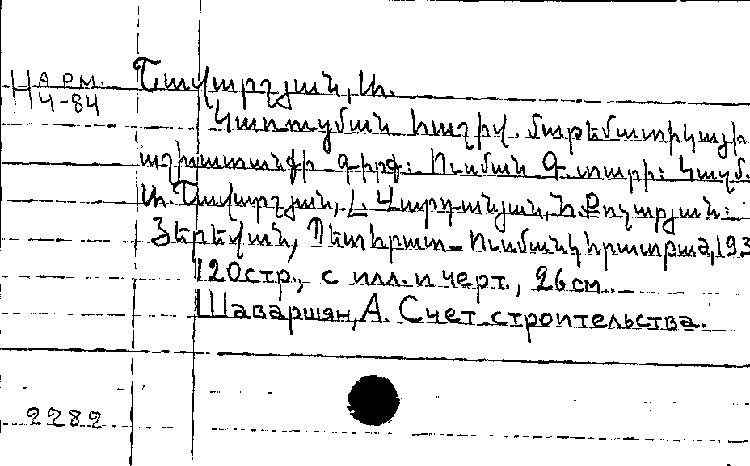 Н АРМ. 4-84
Շավարշյան, Ա.
Կառուցման հաշիվ. մաթեմատիկայի
աշխատանքի գիրք: Ուսման Գ. տարի: Կազմ.
Ա. Շավարշյան, Հ. Վարդանյան, Ն. Քոչարյան:
Յերեվան, Պետհրատ-Ուսմանկհրատբաժ, 193
120стр., с илл. и черт., 26см.
Шаваршян, А. Счет строительства.
2282